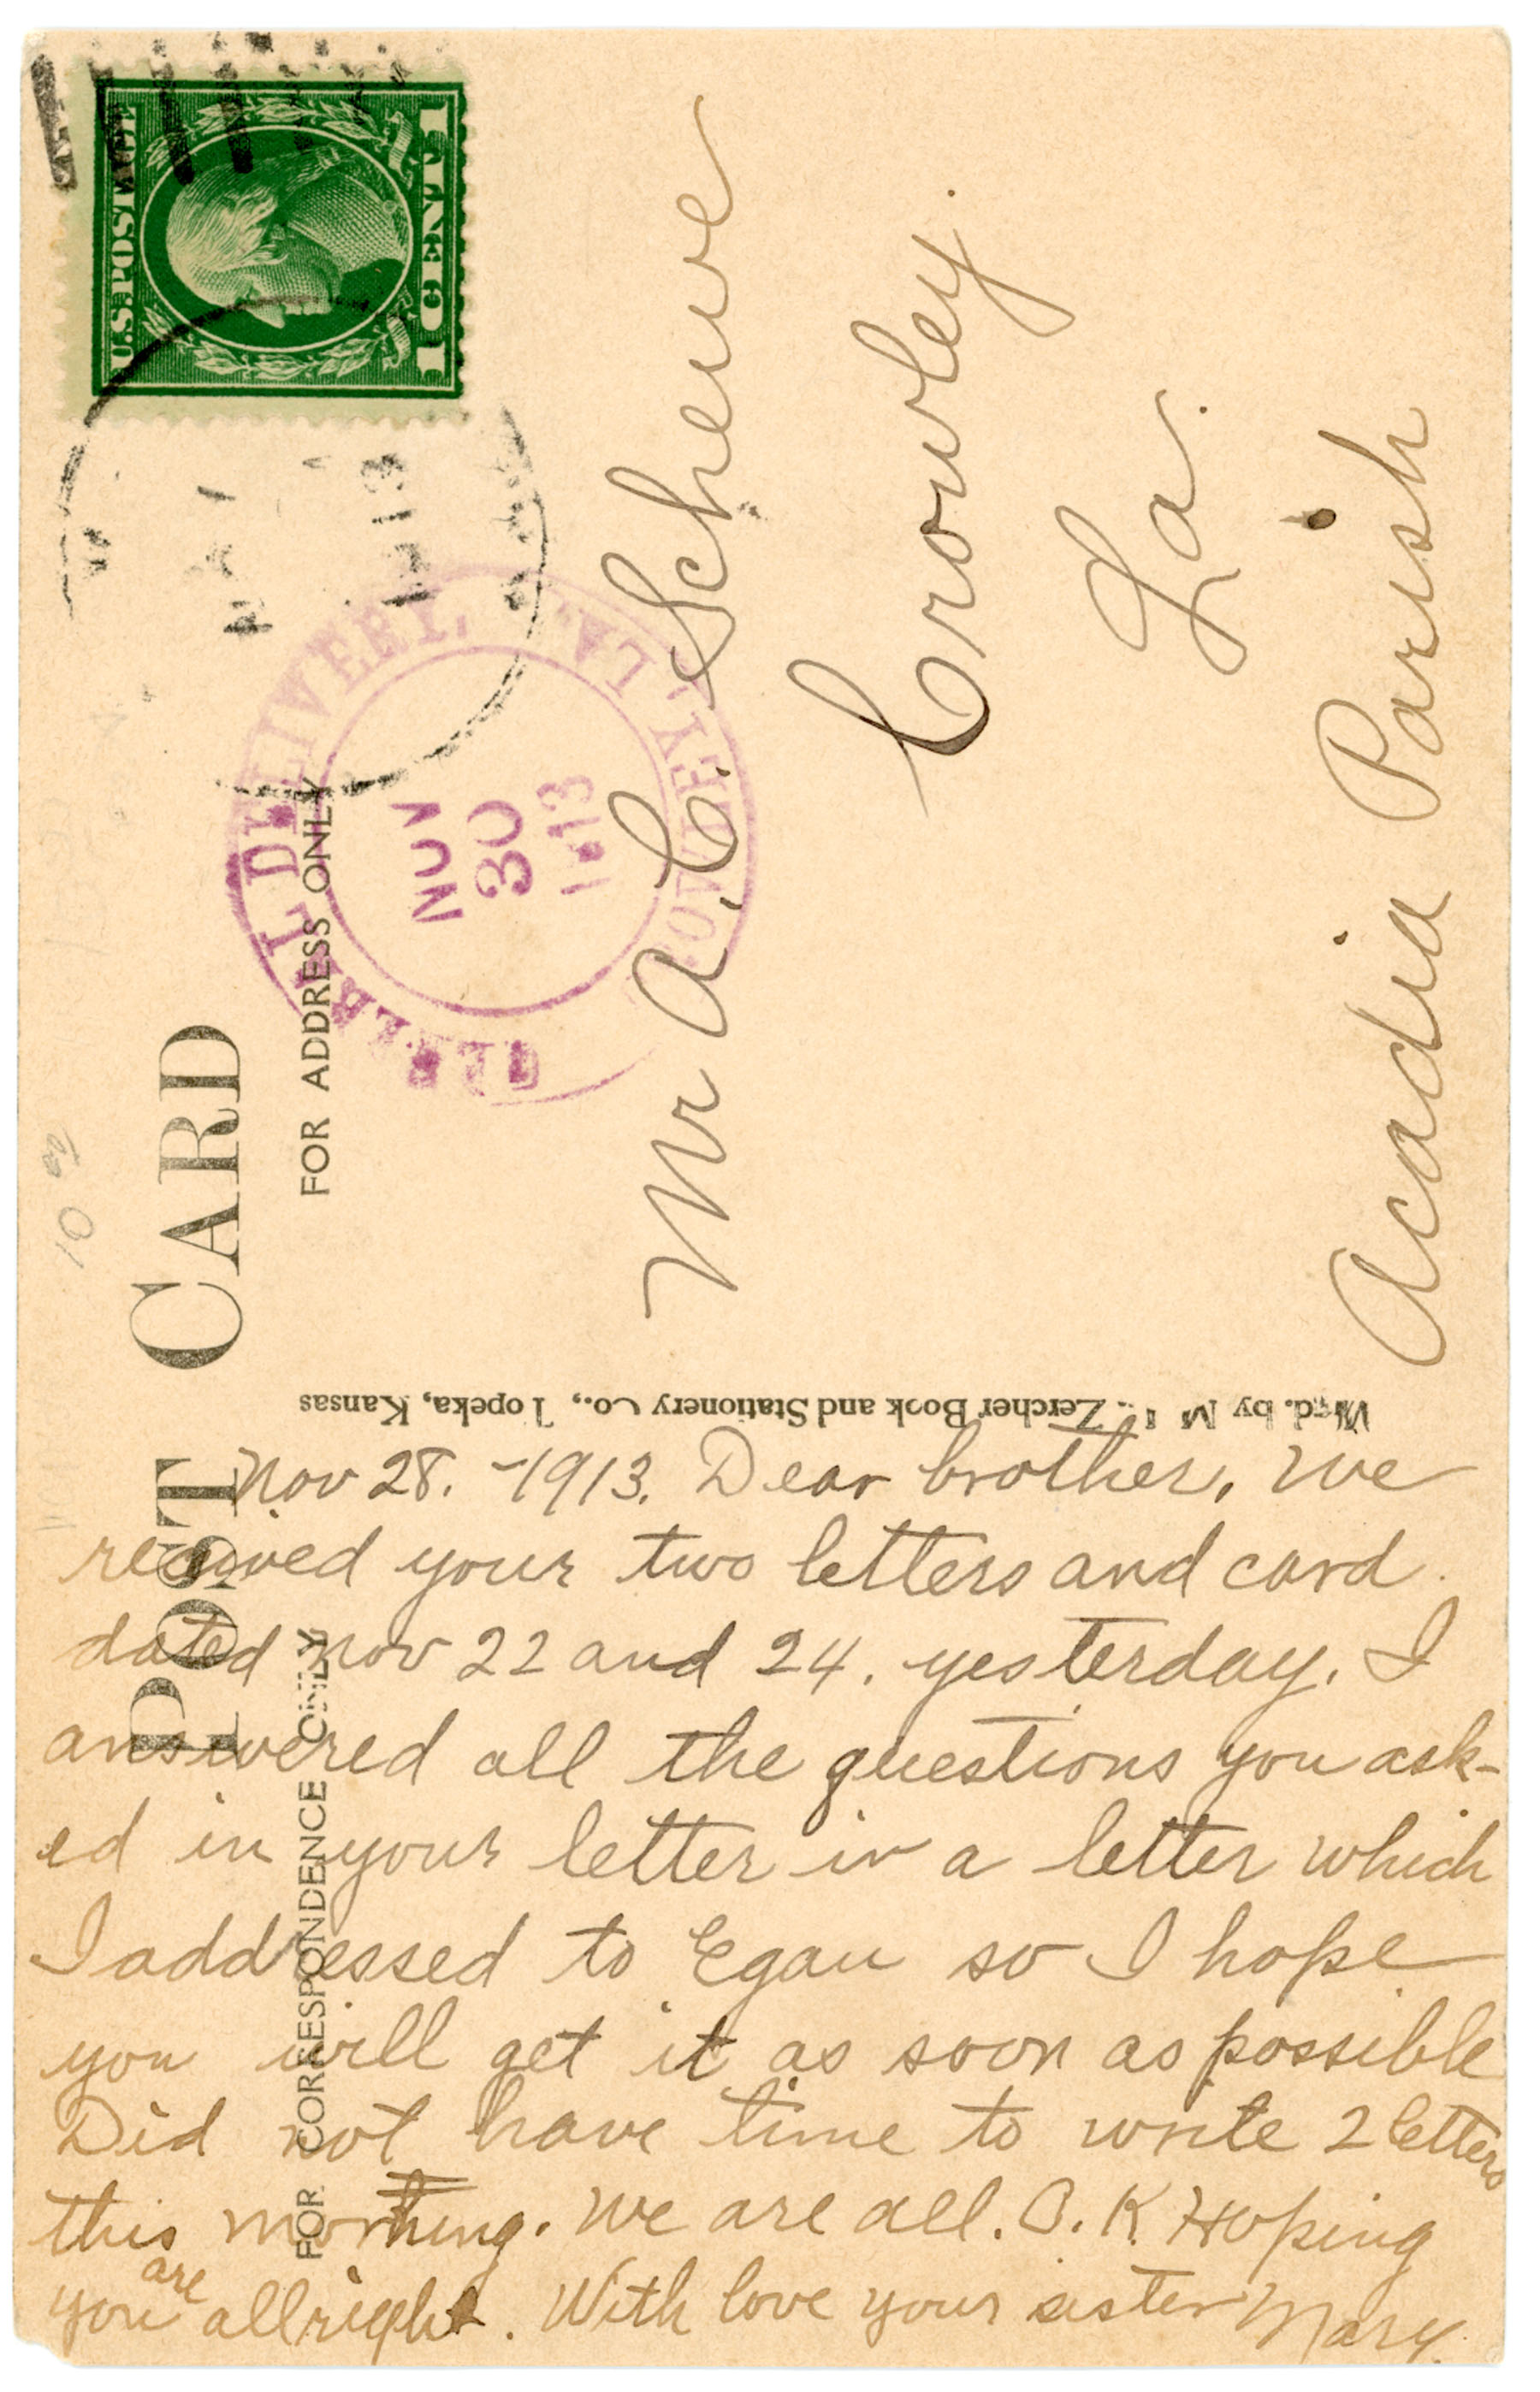 POST CARD
FOR ADDRESS ONLY
U.S. POSTAGE
1 CENT 1
GENERAL DELIVERY,
CROWLEY, LA.
NOV
30
1913
Mr A. C. Schewe
Crowley
La.
Acadia Parish
Zercher Book and Stationery Co., Topeka, Kansas
FOR CORRESPONDENCE ONLY
Nov 28. -1913. Dear brother, We
recieved your two letters and card.
dated Nov 22 and 24. yesterday. I
answered all the questions you ask-
ed in your letter in a letter which
I addressed to Egan so I hope
you will get it as soon as possible
Did not have time to write 2 letters
this morning. We are all. O. K. Hoping
you are allright. With love your sister Mary.